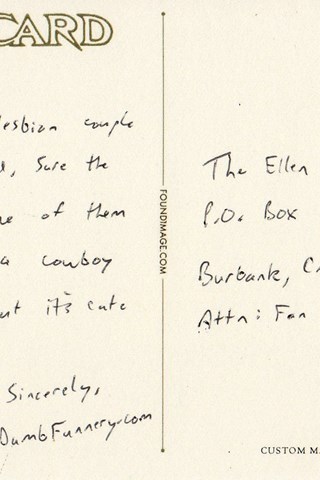 CARD
lesbian couple
, Sure the
of them
a cowboy
it's cute
Sincerely,
DumbFunnery.com
FOUNDIMAGE.COM
The Ellen
P.O. Box
Burbank, C
Attn: Fan
CUSTOM MA